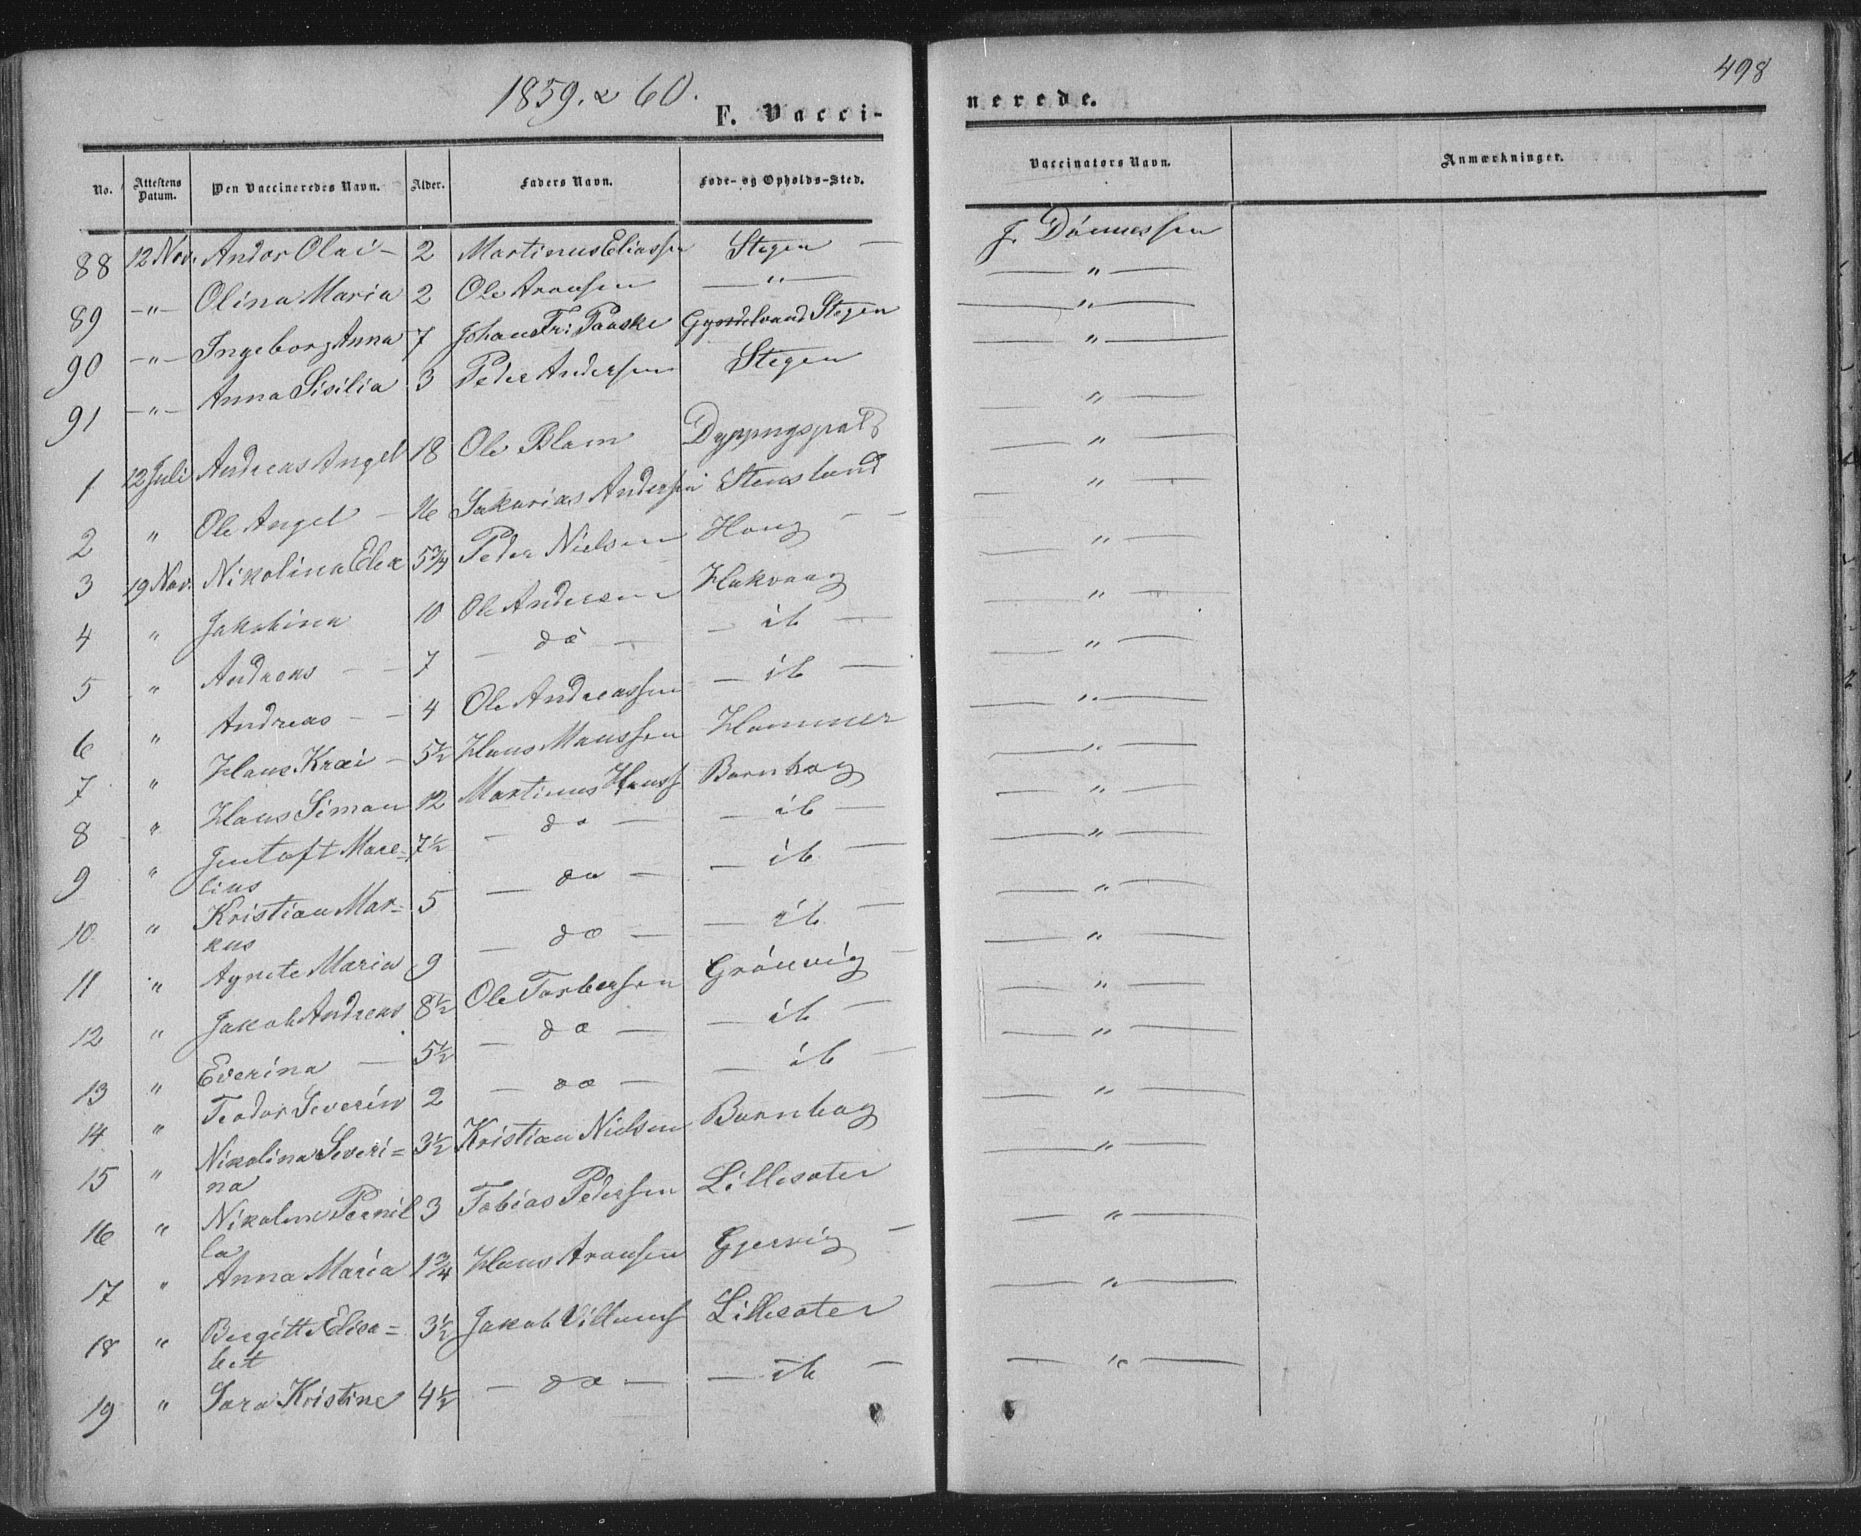 1859. & 60.
F. Vacci-
nerede.
498
No. Attestens Datum. Den Vaccineredes Navn. Alder. Faders Navn. Føde- og Opholds-Sted. Vaccinators Navn. Anmærkninger.
88 12 Nov. Andor Olai - 2 Martinus Eliassen Stegen — J. Dønnessen
89 -"- Olina Maria 2 Ole Aronsen — " — — " —
90 -"- Ingeborg Anna 7 Johan Fr: Paaske Stegen — " —
91 -"- Anna Sisilia 3 Peder Andersen Stegen — " —
1 12 Juli Andreas Angel 18 Ole Blam — " —
2 " Ole Angel - 16 Sakarias Andersen Stensland — " —
3 19 Nov. Nikolina Elea 5 3/4 Peder Nielsen Houg — — " —
4 " Jakobina 10 Ole Andersen Hakvaag — " —
5 " Andreas — 7 — do — — ib — — " —
6 " Andreas - - 4 Ole Andreassen — ib — — " —
7 " Hans Krai - 5 1/2 Hans Monssen Hammer — " —
8 " Hans Simon 12 Martinus Hanss Bornhog — " —
9 " Gustaft Mare= 7 1/2 — do — — ib — — " —
lius
10 " Kristian Mar= 5 — do — — ib — — " —
kus
11 " Agnete Maria 9 — do — — ib — — " —
12 " Jakob Andreas 8 1/2 Ole Torbersen Grönvig — — " —
13 " Everina — 5 1/2 — do — — ib — — " —
14 " Teodor Severin 2 — do — — ib — — " —
15 " Nikolina Severi= 3 1/2 Kristian Nielsen Bornhog — " —
na
16 " Nikoline Pernil 3 Tobias Pedersen Lillesater — " —
la
17 " Anna Maria 1 3/4 Hans Aronsen Gjervig — — " —
18 " Bergitt Elisa= 3 1/2 Jakob Villums Lillesater — " —
bet
19 " Sara Kristine 4 1/2 — do — — ib — — " —